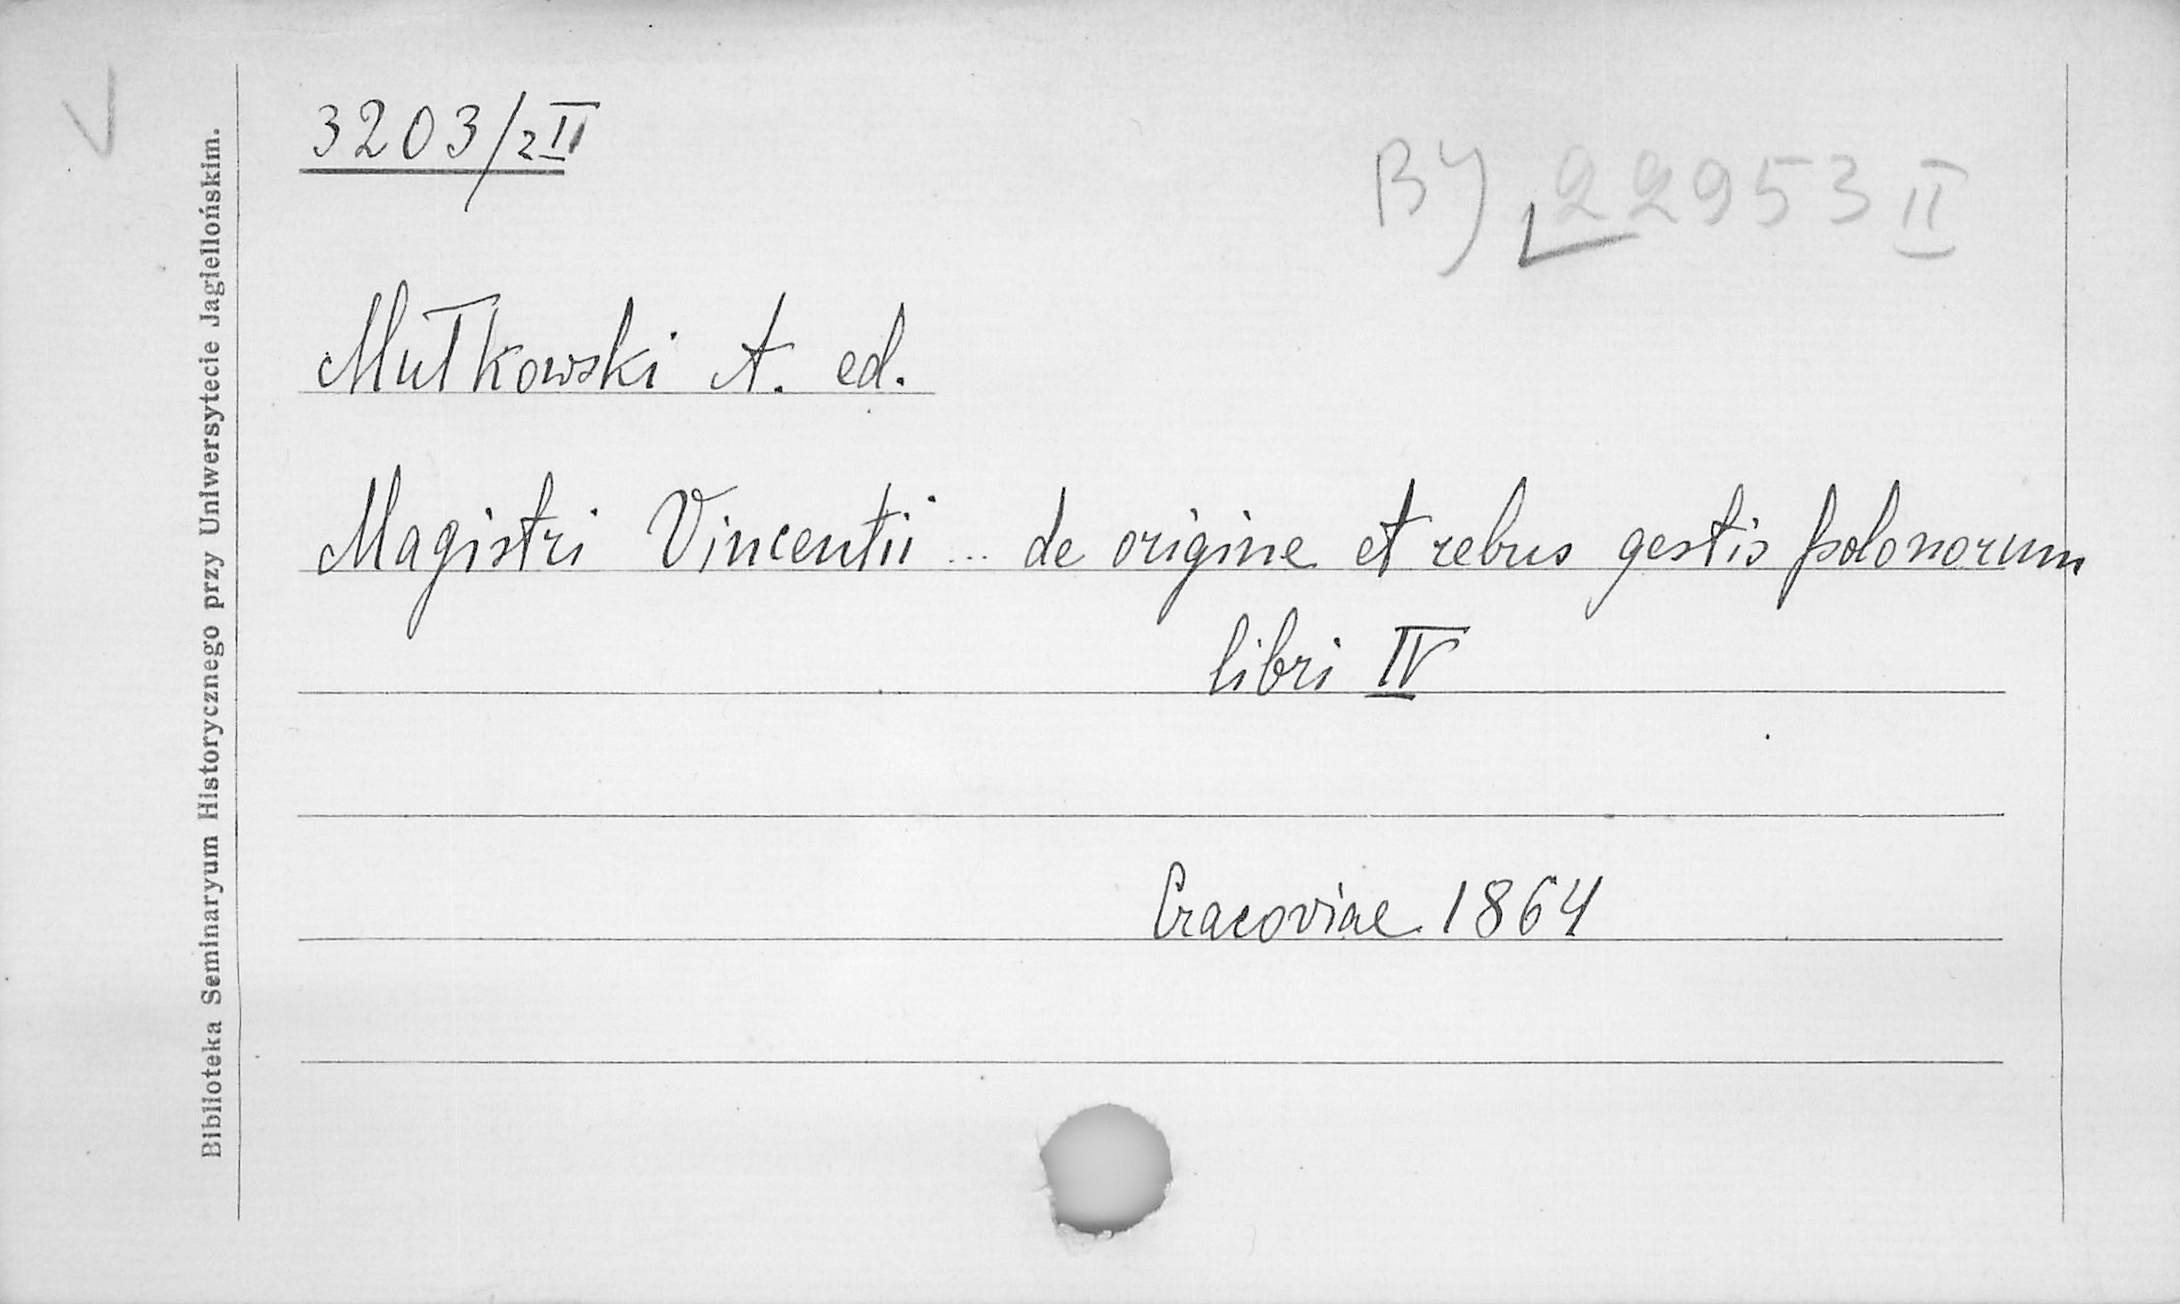 3203/2 II
BJ 22953 II
Mułkowski A. ed.
Magistri Vincentii ... de origine et rebus gestis polonorum
libri IV
Cracoviae 1864
Biblioteka Seminaryum Historycznego przy Uniwersytecie Jagiellońskim.